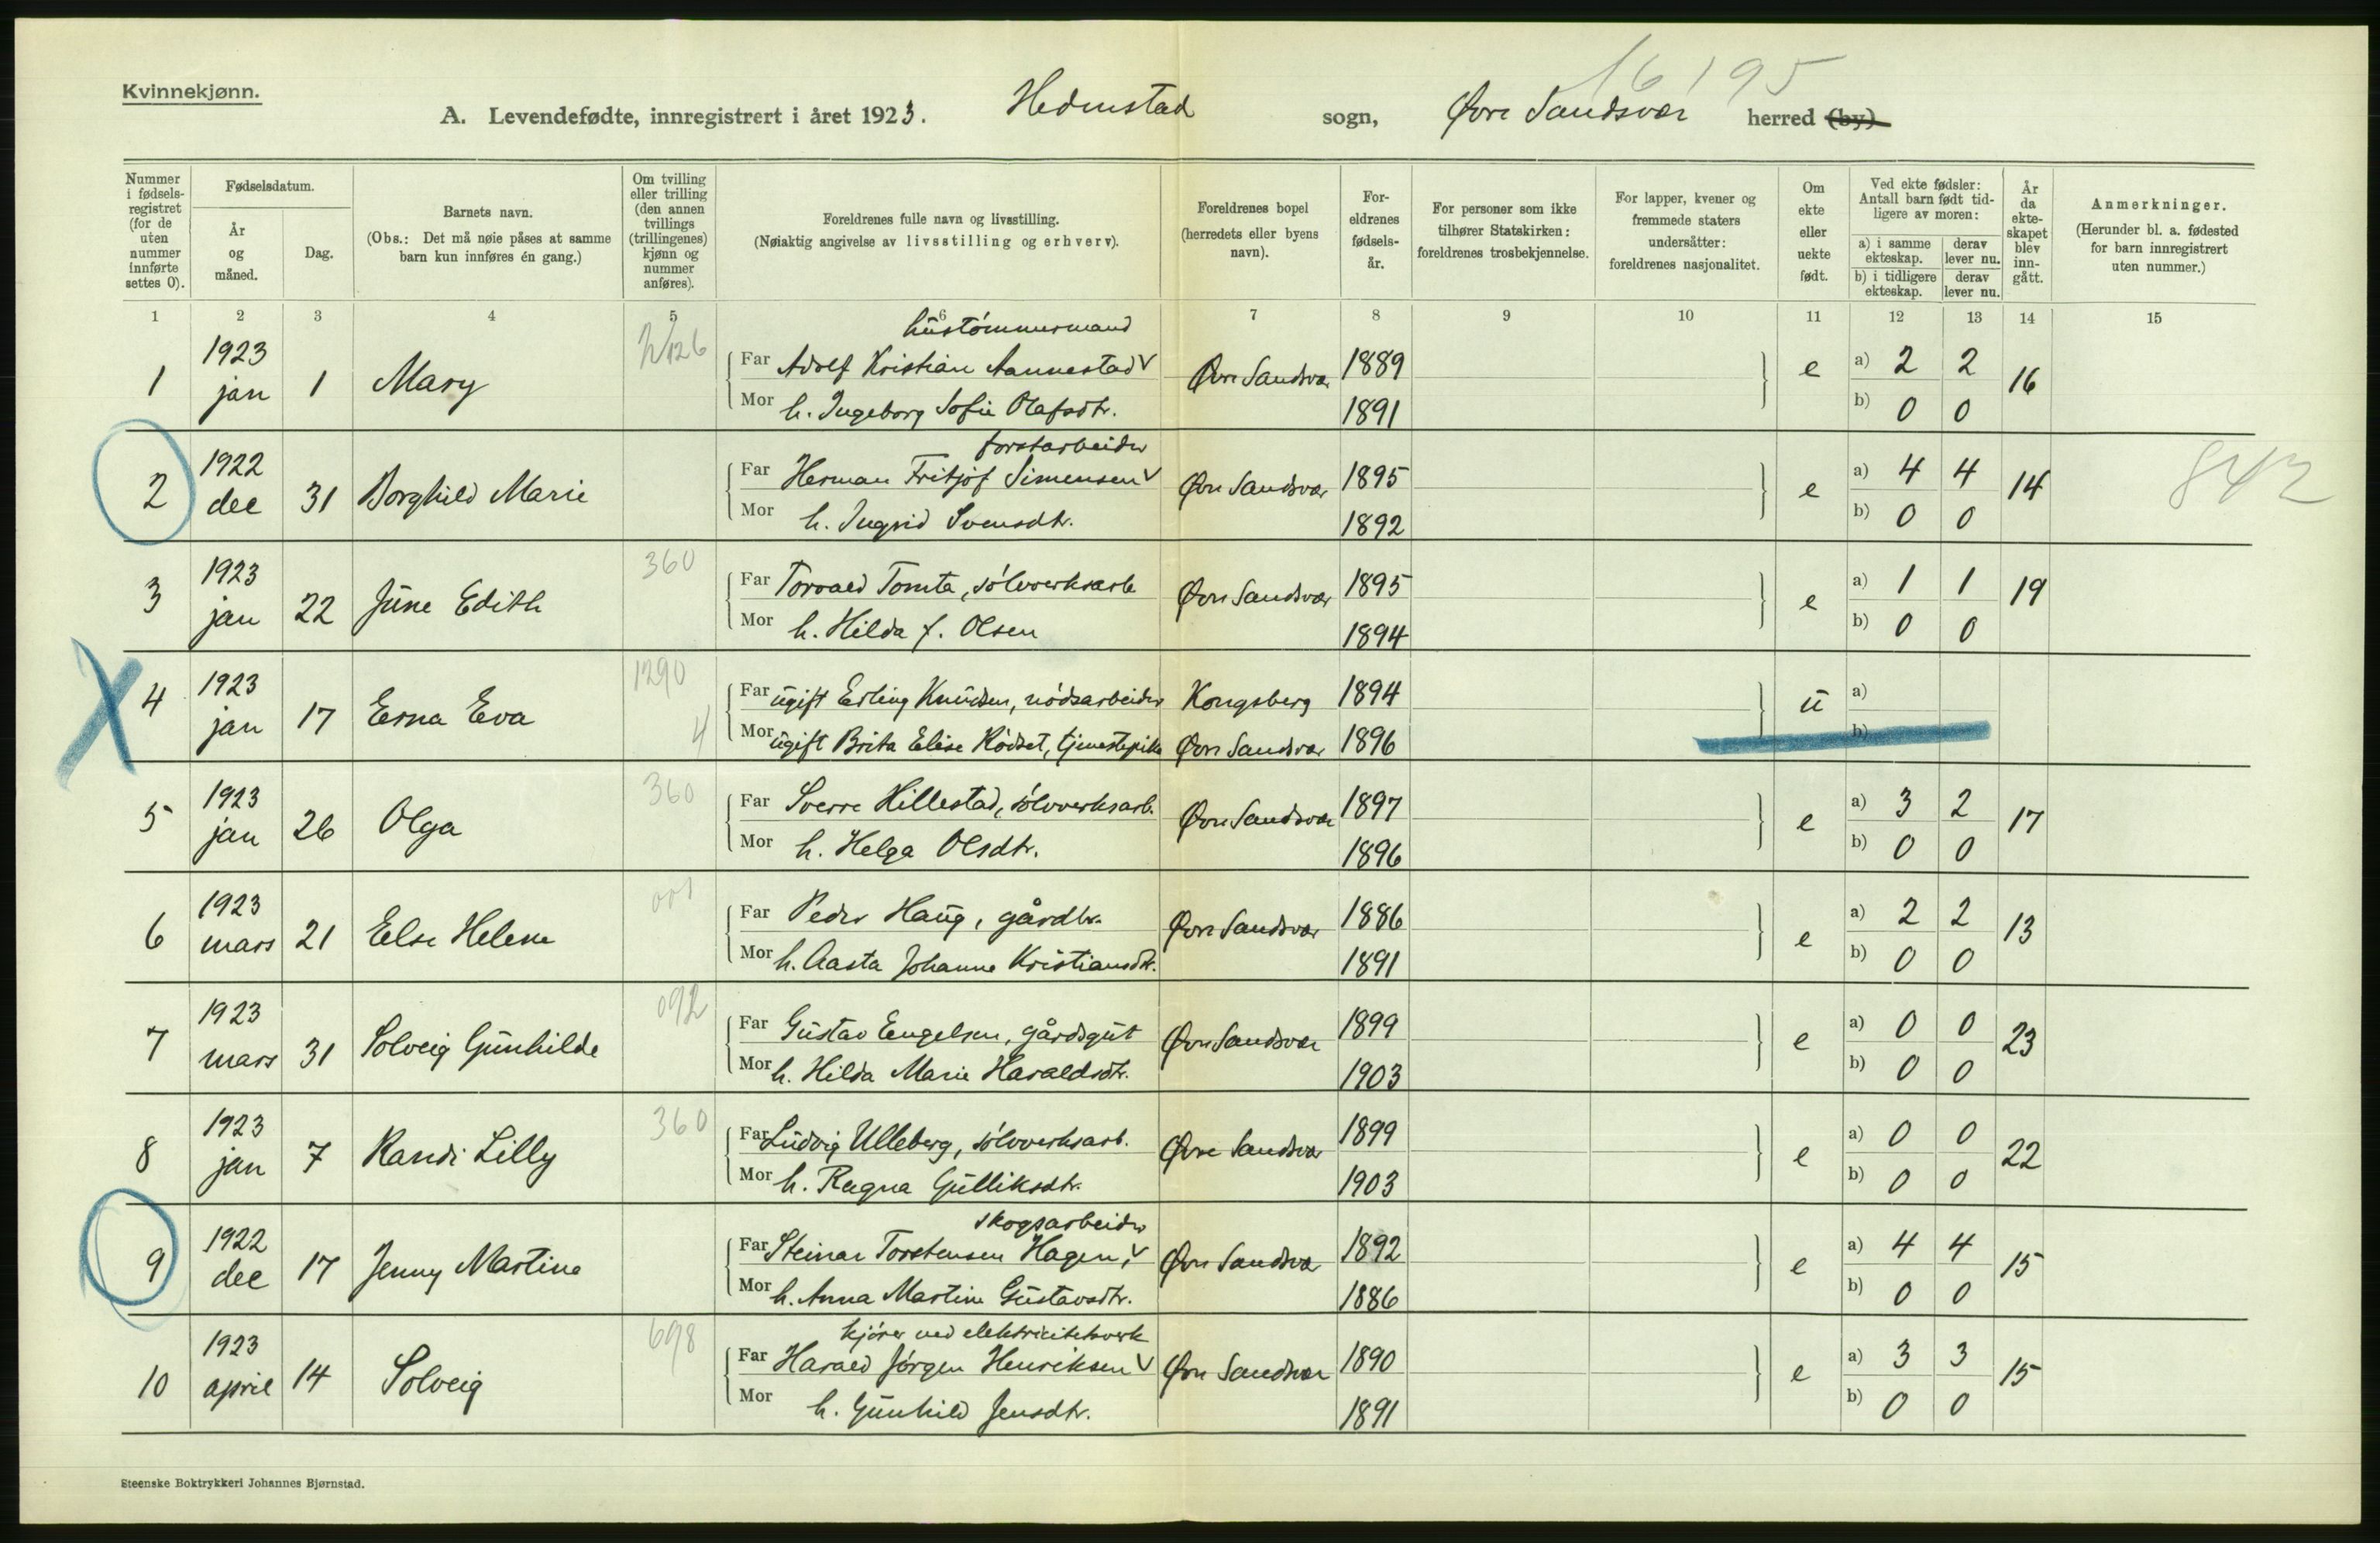 16195
Kvinnekjønn.
A. Levendefødte, innregistrert i året 1923. Hedenstad sogn, Øvre Sandsvær herred (by)
Nummer i fødselsregistret (for de uten nummer innførte settes 0).
Fødselsdatum.
År og måned.
Dag.
Barnets navn.
(Obs.: Det må nøie påses at samme barn kun innføres én gang.)
Om tvilling eller trilling (den annen tvillings (trillingenes) kjønn og nummer anføres).
Foreldrenes fulle navn og livsstilling.
(Nøiaktig angivelse av livsstilling og erhverv).
Foreldrenes bopel (herredets eller byens navn).
Foreldrenes fødselsår.
For personer som ikke tilhører Statskirken: foreldrenes trosbekjennelse.
For lapper, kvener og fremmede staters undersåtter: foreldrenes nasjonalitet.
Om ekte eller uekte født.
Ved ekte fødsler: Antall barn født tidligere av moren:
a) i samme ekteskap. derav lever nu.
b) i tidligere ekteskap. derav lever nu.
År da ekteskapet blev inngått.
Anmerkninger.
(Herunder bl. a. fødested for barn innregistrert uten nummer.)
1 2 3 4 5 6 7 8 9 10 11 12 13 14 15
hustømmermand
1 1923 jan 1 Mary Far Adolf Kristian Aannestad Øvre Sandsvær 1889 e a) 2 2 16
Mor h. Ingeborg Sofie Olafsdtr. 1891 b) 0 0
forstarbeider
2 1922 dec 31 Borghild Marie Far Herman Fritjof Simensen Øvre Sandsvær 1895 e a) 4 4 14 842
Mor h. Ingrid Svensdtr. 1892 b) 0 0
3 1923 jan 22 June Edith 360 Far Torvald Tomta, sølvverksarb Øvre Sandsvær 1895 e a) 1 1 19
Mor h. Hilda f. Olsen 1894 b) 0 0
4 1923 jan 17 Erna Eva 1290 4 Far ugift Erling Knudsen, nødsarbeider Kongsberg 1894 u a)
Mor ugift Brita Elise Rødset, tjenestepike Øvre Sandsvær 1896 b)
5 1923 jan 26 Olga 360 Far Sverre Hillestad, sølvverksarb. Øvre Sandsvær 1897 e a) 3 2 17
Mor h. Helga Olsdtr. 1896 b) 0 0
6 1923 mars 21 Else Helene 001 Far Peder Haug, gårdbr. Øvre Sandsvær 1886 e a) 2 2 13
Mor h. Aasta Johanne Kristiansdtr. 1891 b) 0 0
7 1923 mars 31 Solveig Gunhilde 092 Far Gustav Engelsen, gårdsgut Øvre Sandsvær 1899 e a) 0 0 23
Mor h. Hilda Marie Haraldsdtr. 1903 b) 0 0
8 1923 jan 7 Randi Lilly 360 Far Ludvig Ulleberg, sølvverksarb. Øvre Sandsvær 1899 e a) 0 0 22
Mor h. Ragna Gulliksdtr. 1903 b) 0 0
skogsarbeider
9 1922 dec 17 Jenny Martine Far Steinar Torstensen Hagen, Øvre Sandsvær 1892 e a) 4 4 15
Mor h. Anna Martine Gustavsdtr. 1886 b) 0 0
kjører ved elektricitetsverk
10 1923 april 14 Solveig 698 Far Harald Jørgen Henriksen Øvre Sandsvær 1890 e a) 3 3 15
Mor h. Gunhild Jensdtr. 1891 b) 0 0
Steenske Boktrykkeri Johannes Bjørnstad.